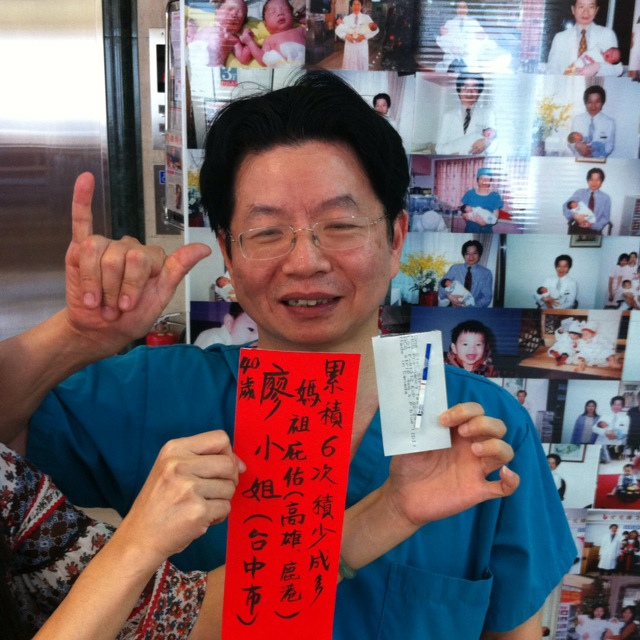 累積6次積少成多
媽祖庇佑(高雄鹿港)
廖小姐(台中市)
40歲